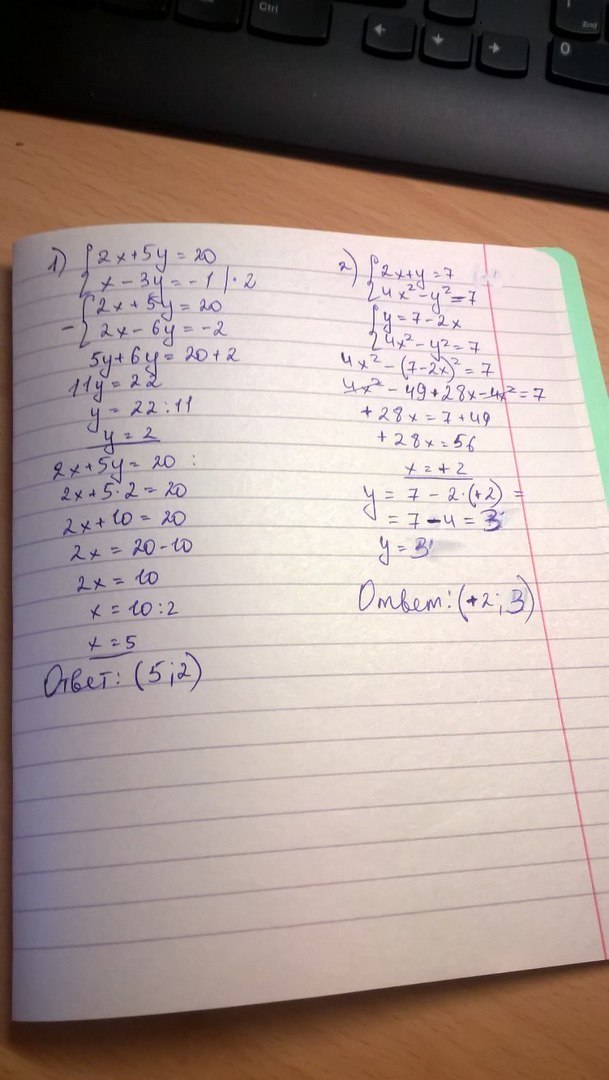 Ctrl
End
0
1) { 2x+5y = 20
x - 3y = -1 | · 2
- { 2x + 5y = 20
2x - 6y = -2
5y + 6y = 20 + 2
11y = 22
y = 22 : 11
y = 2
2x + 5y = 20 :
2x + 5·2 = 20
2x + 10 = 20
2x = 20 - 10
2x = 10
x = 10 : 2
x = 5
Ответ: (5; 2)
2) { 2x+y = 7
4x² - y² = 7
{ y = 7 - 2x
4x² - y² = 7
4x² - (7-2x)² = 7
4x² - 49 + 28x - 4x² = 7
+ 28x = 7 + 49
+ 28x = 56
x = + 2
y = 7 - 2·(+2) =
= 7 - 4 = 3
y = 3
Ответ: (+2; 3)